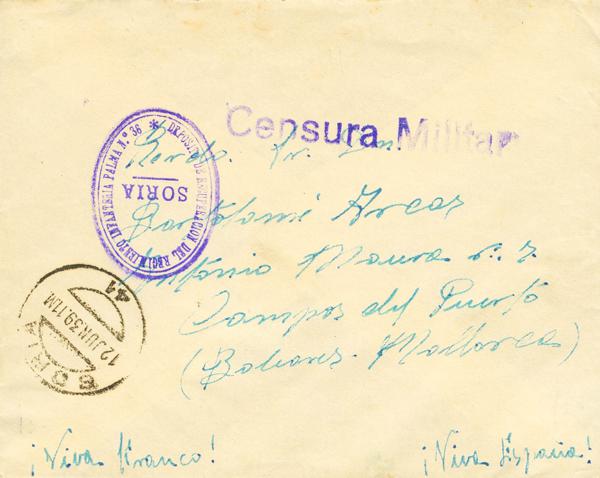 Censura Militar
DEPOSITO DE RECUPERACION DEL REGIMIENTO INFANTERIA PALMA N.º 36 *
SORIA
Revdo. Sr. Don
Bartolomé Arcas
Antonio Maura n. 7
Campos del Puerto
(Baleares. Mallorca)
SORIA
12 JUN 39. 11M
41
¡Viva Franco!
¡Viva España!